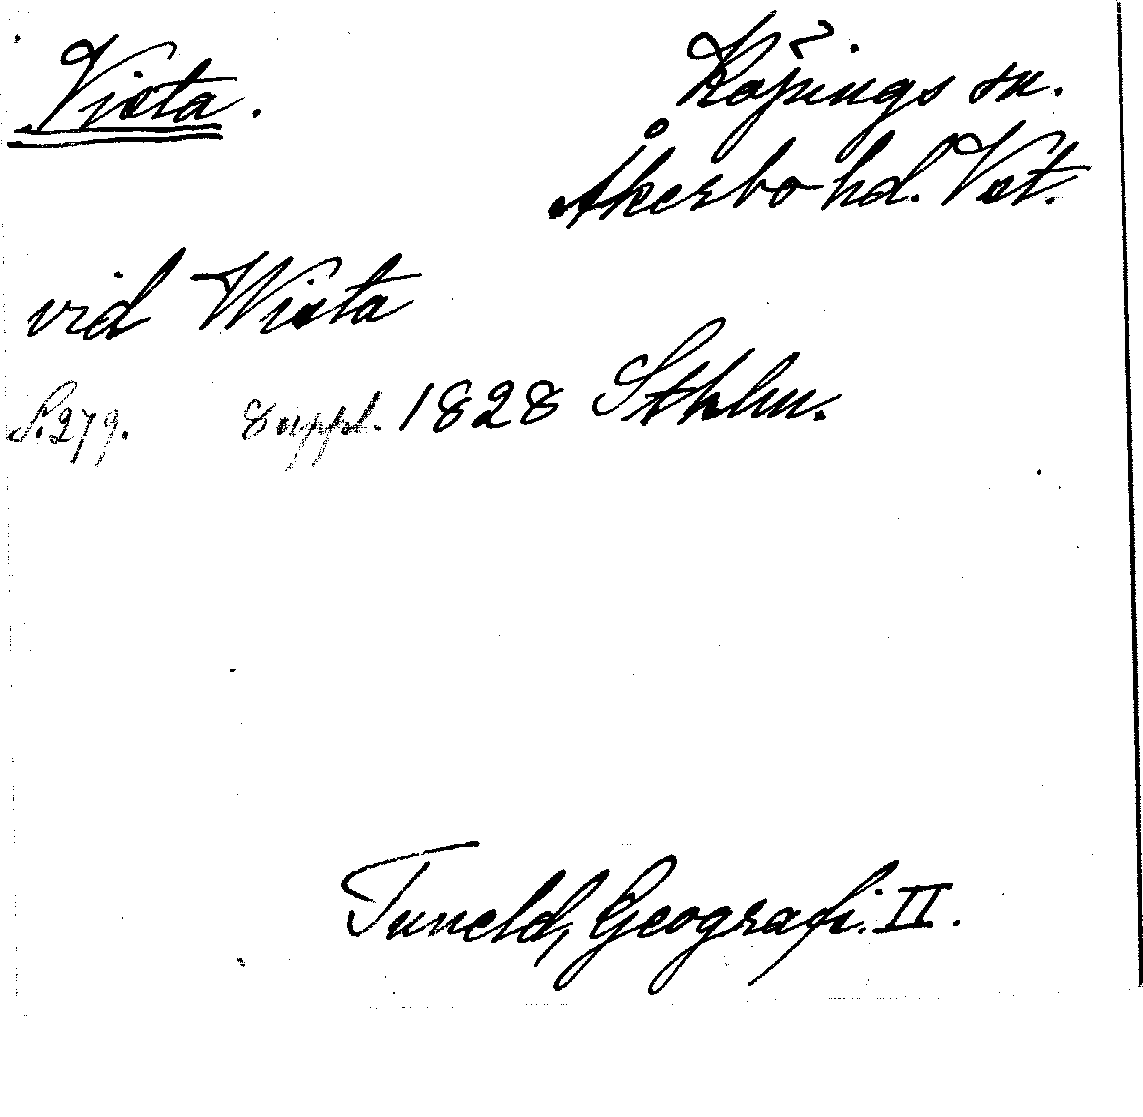 Vista.
Köpings sn.
Åkerbo hd. Vst.
vid Wista
S. 279. Suppl. 1828 Sthlm.
Tuneld, Geografi. II.